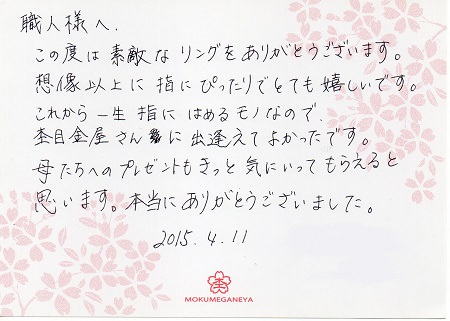 職人様へ.
この度は素敵なリングをありがとうございます。
想像以上に指にぴったりでとても嬉しいです。
これから一生指にはめるモノなので、
杢目金屋さんに出逢えてよかったです。
母たちへのプレゼントもきっと気にいってもらえると
思います。本当にありがとうございました。
2015.4.11
MOKUMEGANEYA